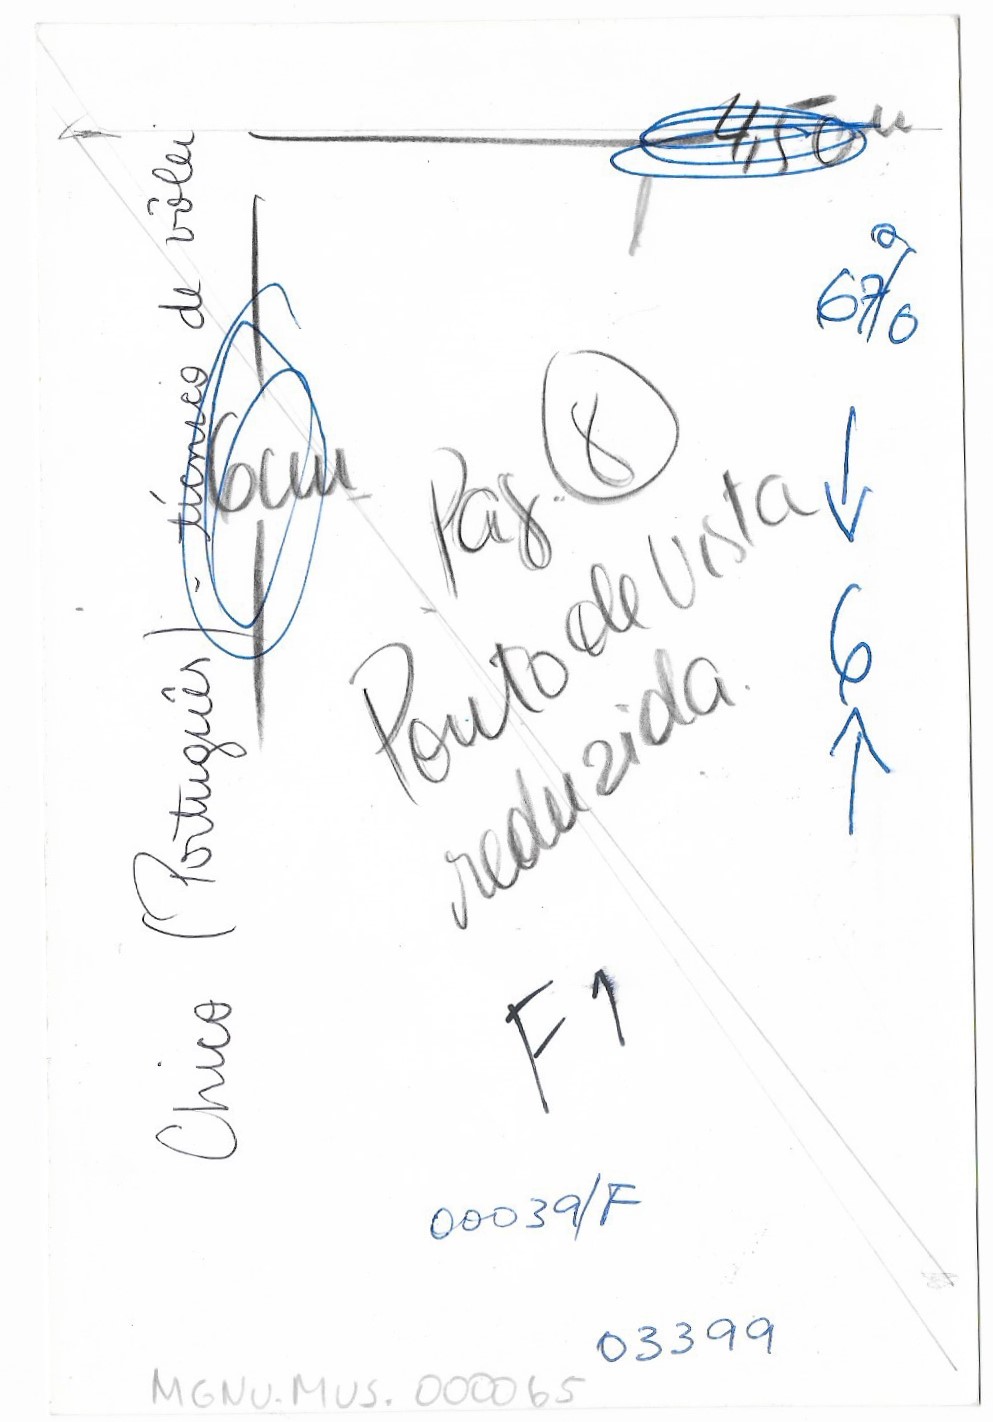 4,50
67%
6cm
Pág. 8
Ponto de Vista
reduzida.
6
Chico (Português) - técnico de vôlei
F1
00039/F
03399
MGNU.MUS.000065